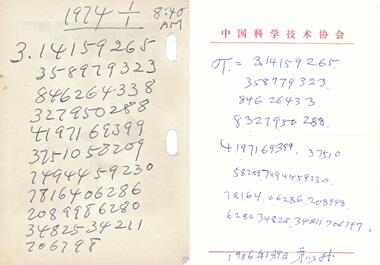 1974 1/1 8:40
AM
3.14159265
358979323
846264338
327950288
4197169399
3751058209
7494459230
7816406286
2089986280
3482534211
706798
中国科学技术协会
π = 3.14159265
358979323
84626433
8327950288
4197169399. 37510
582097494459230.
78164.06286.208998
628034825.34211706797.